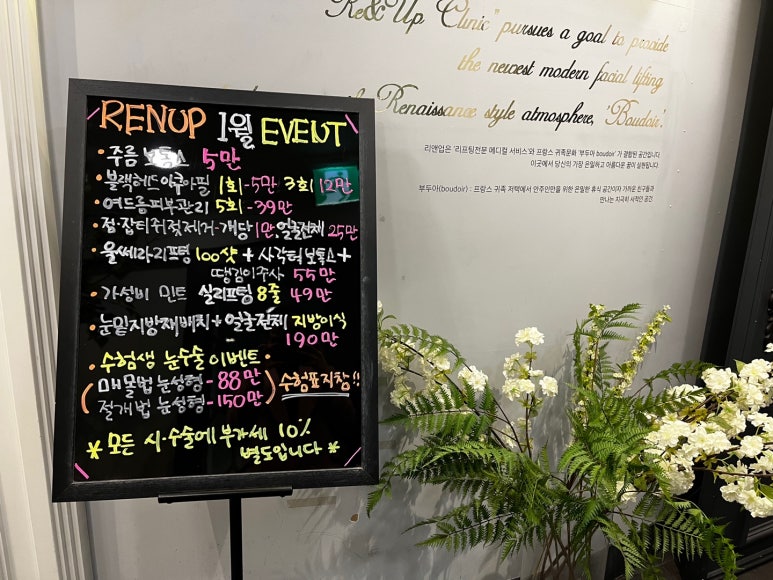 "Re&Up Clinic" pursues a goal to provide
the newest modern facial lifting
Renaissance style atmosphere, 'Boudoir'.
리앤업은 '리프팅전문 메디컬 서비스'와 프랑스 귀족문화 '부두아 boudoir' 가 결합된 공간입니다
이곳에서 당신의 가장 은밀하고 아름다운 꿈이 실현됩니다
부두아(boudoir) : 프랑스 귀족 저택에서 안주인만을 위한 은밀한 휴식 공간이자 가까운 친구들과
만나는 지극히 사적인 공간
RENUP 1월 EVENT
• 주름 보톡스 5만
• 블랙헤드 아쿠아필 1회-5만 3회 12만
• 여드름피부관리 5회-39만
• 점·잡티·쥐젖제거-개당 1만, 얼굴전체 25만
• 울쎄라리프팅 100샷 + 사각턱보톡스 +
땡김이주사 55만
• 가성비 민트 실리프팅 8줄 49만
• 눈밑지방재배치 + 얼굴전체 지방이식
190만
• 수험생 눈수술 이벤트 •
( 매몰법 눈성형 - 88만
절개법 눈성형 - 150만 ) 수험표지참!!
* 모든 시·수술에 부가세 10%
별도입니다 *